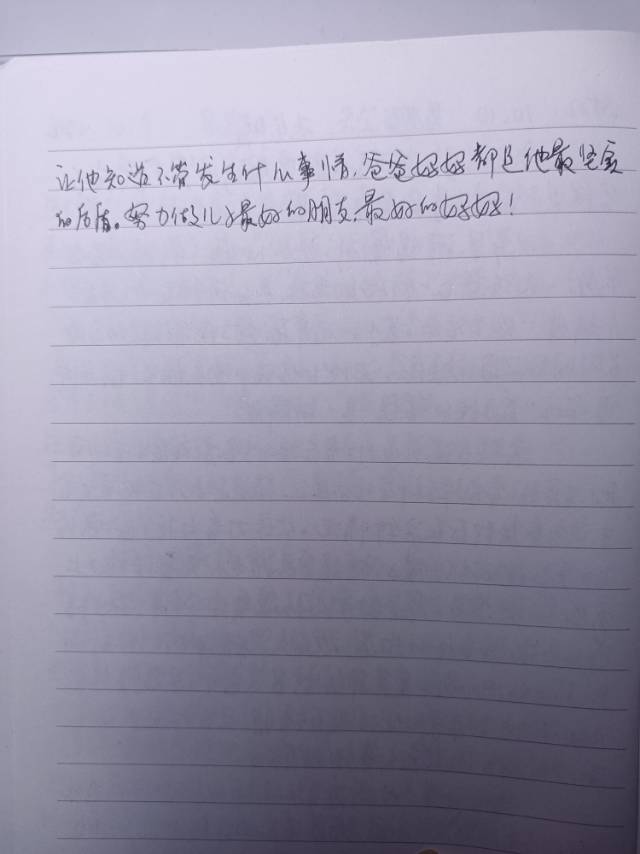 让他知道不管发生什么事情,爸爸妈妈都是他最坚实
的后盾。努力做儿子最好的朋友,最好的妈妈!